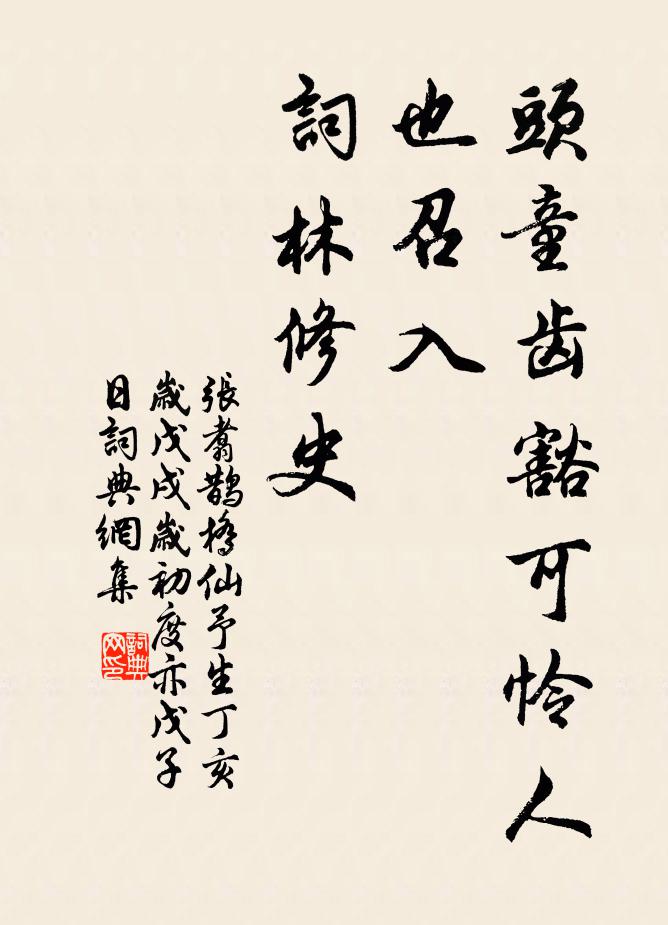 頭童齿豁可怜人
也召入
詞林修史
張翥鵲橋仙予生丁亥
歲戊戌歲初度亦戊子
日詞典網集
詞典
网印